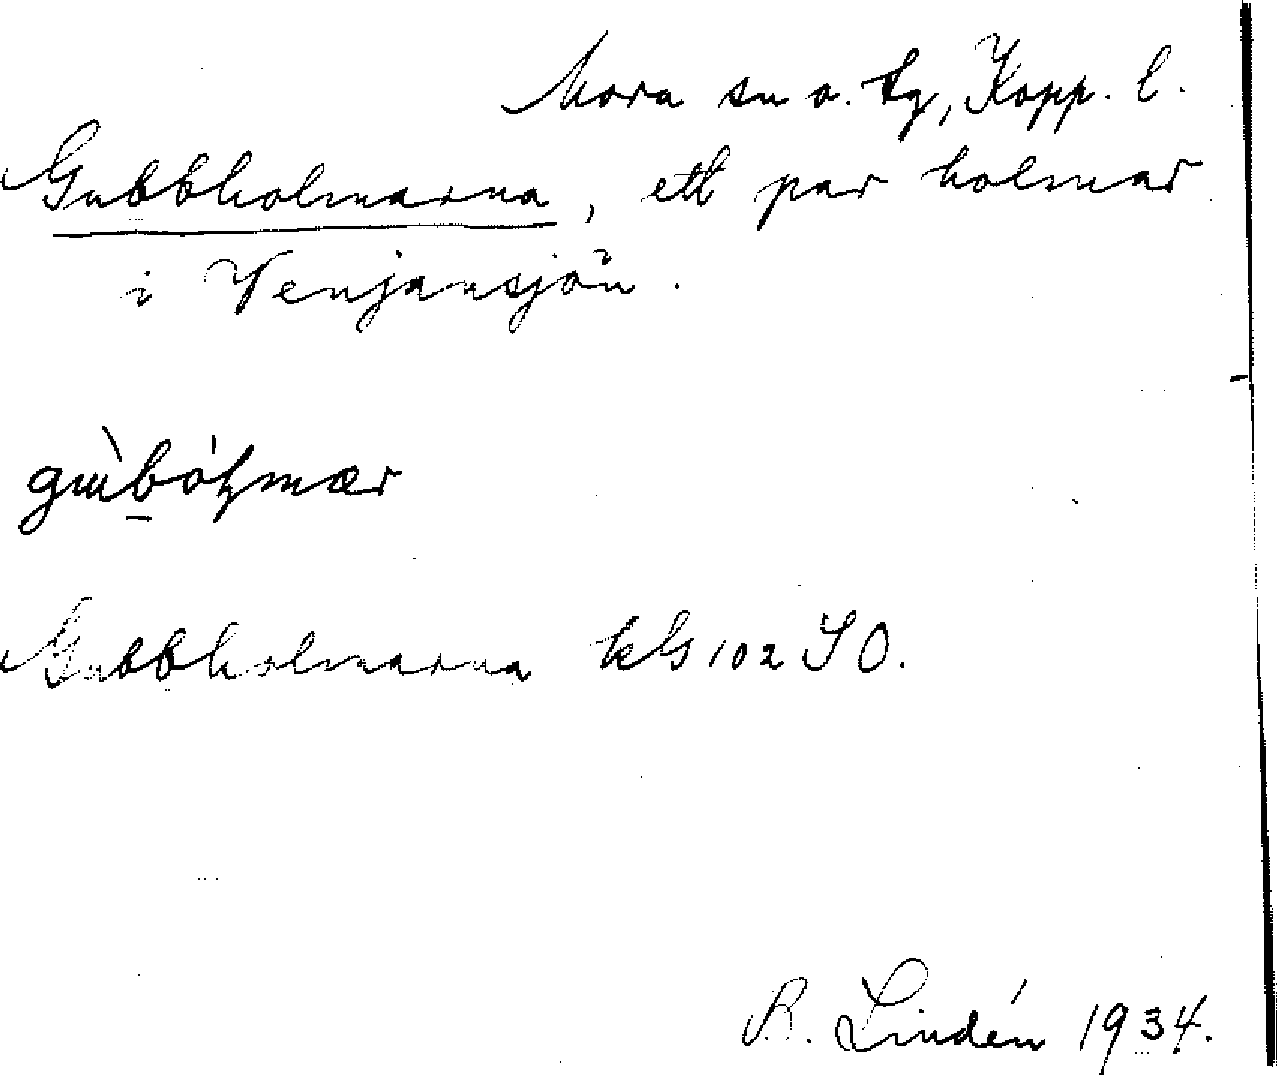 Mora sn o. tg, Kopp. l.
Gubbholmarna, ett par holmar
i Venjansjön.
Gubbholmarna kbl 102 SO.
R. Lindén 1934.